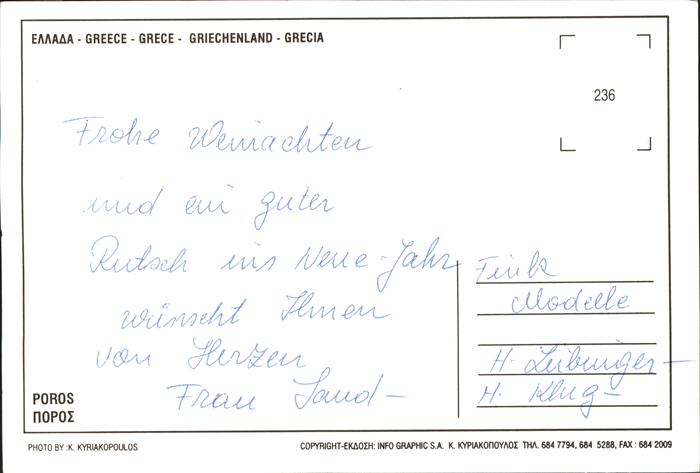 ΕΛΛΑΔΑ - GREECE - GRECE - GRIECHENLAND - GRECIA
236
Frohe Weinachten
und ein guter
Rutsch ins Neue-Jahr
wünscht Ihnen
von Herzen
Frau Sand-
Fink
Modelle
H. Leibinger-
H. Klug-
POROS
ΠΟΡΟΣ
PHOTO BY :K. KYRIAKOPOULOS
COPYRIGHT-ΕΚΔΟΣΗ: INFO GRAPHIC S.A. Κ. ΚΥΡΙΑΚΟΠΟΥΛΟΣ ΤΗΛ. 684 7794, 684 5288, FAX : 684 2009